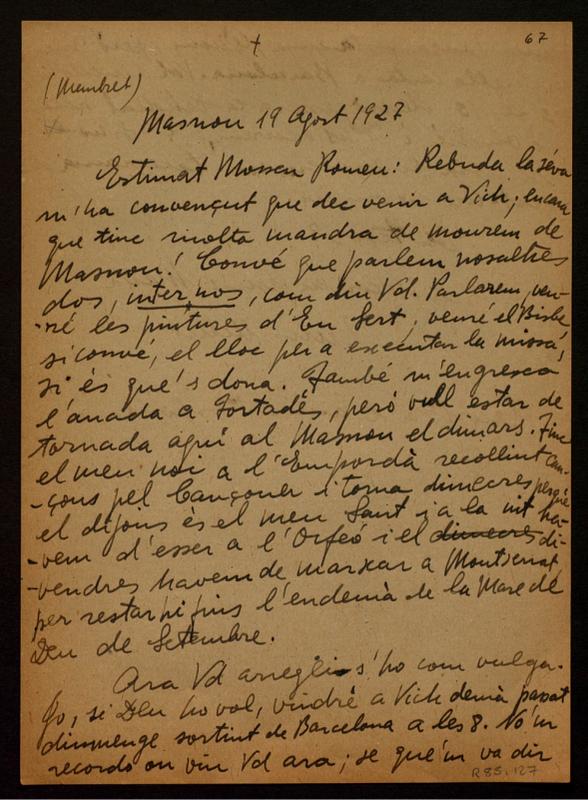 67
(Membret)
Masnou 19 Agost 1927
Estimat Mossen Romeu: Rebuda la séva
m'ha convençut que dec venir a Vich; encara
que tinc molta mandra de mourem de
Masnou! Convé que parlem nosaltres
dos, inter nos, com diu Vd. Parlarem, veu-
-ré les pintures d'En Sert, veuré el Bisbe
si convé, el lloc per a executar la missa,
si és què's dona. També m'engresca
l'anada a Tortadés, peró vull estar de
tornada aquí al Masnou el dimars. Tinc
el meu noi a l'Empordà recollint can-
-çons pel Cançoner i torna dimecres perquè
el dijous és el meu Sant i a la nit ha-
-vem d'esser a l'Orfeó i el dimecres di-
-vendres havem de marxar a Montserrat
per restarhi fins l'endemà de la Mare de
Deu de Setembre.
Ara Vd arregli s'ho com vulga.
Jo, si Deu ho vol, vindré a Vich demà passat
diumenge sortint de Barcelona a les 8. No'm
recordo on viu Vd ara; se que'm va dir
R85.127